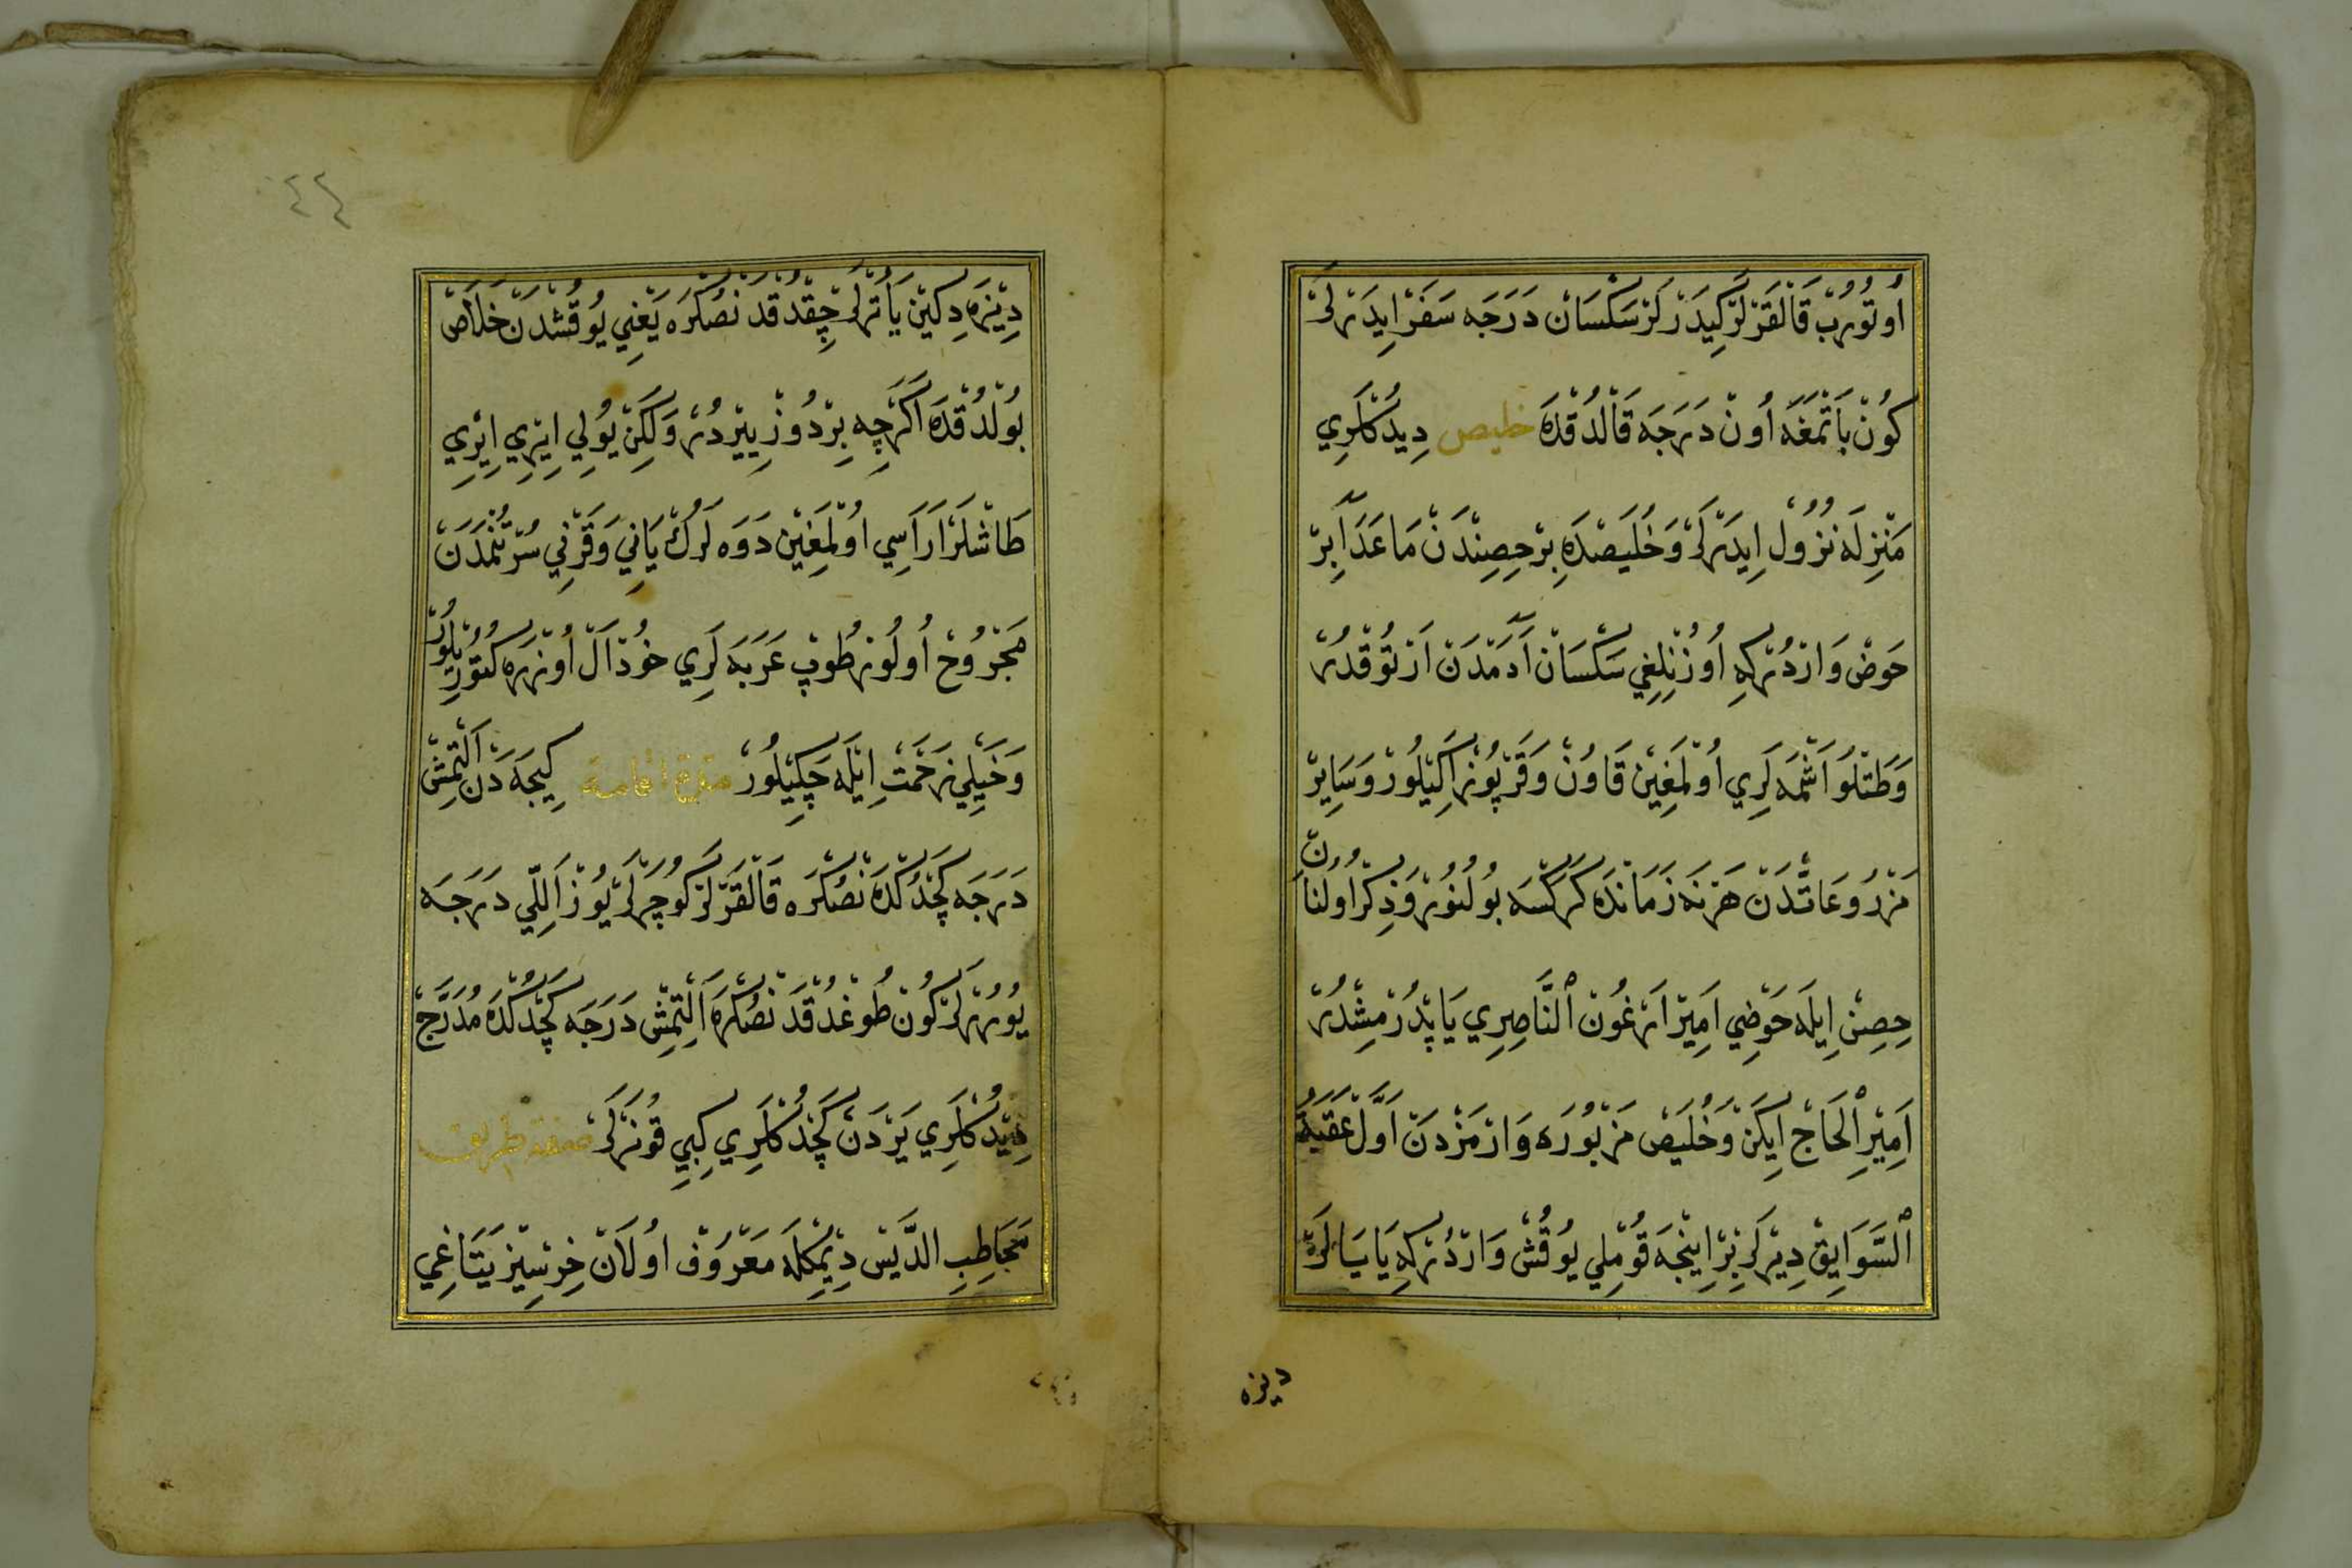 اُوتُورُبْ قَالْقَرْلَرْ كِيدَرْلَرْ سَكْسَانْ دَرَجَه سَفَرْ ايِدَرْلَرْ
كُونْ بَاتْمَغَه اُونْ دَرَجَه قَالْدُقْدَه خليص دِيدُكْلَرِي
مَنْزِلَه نُزُولْ اِيدَرْلَرْ وَخُلَيصْدَه بِرْ حِصِنْدَنْ مَاعَدَا بِرْ
حَوضْ وَارْدُرْكِه اُوزُنْلِغِي سَكْسَانْ آدَمْدَنْ اَرْتُوقْدُرْ
وَطَتْلُو اَشْمَه لَرِي اُولْمَغِينْ قَاوُنْ وَقَرْپُوزْ اَكِيلُورْ وَسَايِرْ
مَزْرُوعَاتْدَنْ هَرْنَه زَمَانْدَه كَرَكْسَه بُولُنُورْ وَذِكْرْ اُولُنَانْ
حِصِنْ اِيلَه حَوضِي اَمِيرْ اَرْغُونْ اَلنَّاصِرِي يَاپْدُرْمِشْدُرْ
اَمِيرِ اَلْحَاجْ اِيكَنْ وَخُلَيصْ مَزْبُورَه وَارْمَزْدَنْ اَوَّلْ عَقَبَةُ
اَلسَّوَايِقْ دِيرْلَرْ بِرْ اِينْجَه قُومْلِي يُوقُشْ وَارْدُرْكِه يَايَا لَرَه
ديزه
٤٤
دِيزَه دِكِينْ يَاتْرلَرْ چِقْدُقْدَنْصُكْرَه يَعْنِي يُوقُشْدَنْ خَلَاصْ
بُولْدُقْدَه اَكَرْچِه بِرْ دُوزْ يِيرْدُرْ وَلَكِنْ يُولِي اِيْرِي اِيْرِي
طَاشْلَرْ اَرَاسِي اُولْمَغِينْ دَوَه لَرُكْ يَانِي وَقَرْنِي سُرْتُنْمَدَنْ
مَجْرُوحْ اُولُورْ طُوپْ عَرَبَه لَرِي خُودْ اَلْ اُوزَرَه كُتُورِيلُورْ
وَخَيْلِي زَحْمَتْ اِيلَه چَكِيلُورْ كِيجَه دَنْ اَلْتِمِشْ
دَرَجَه كَچْدُكْدَنْصُكْرَه قَالْقَرْلَرْ كُوچَرْلَرْ يُوزْ اَللِّي دَرَجَه
يُورُرْلَرْ كُونْ طُوغْدُقْدَنْصُكْرَه اَلْتِمِشْ دَرَجَه كَچْدُكْدَه مُدَرَّجْ
دِيدُكْلَرِي يَرْدَنْ كَچْدُكْلَرِي كِبِي قُونَرْلَرْ
مَجَاطِبِ الدَّيسْ دِيمْكِلَه مَعْرُوفْ اُولَانْ خِرْسِيزْ يَتَاغِي